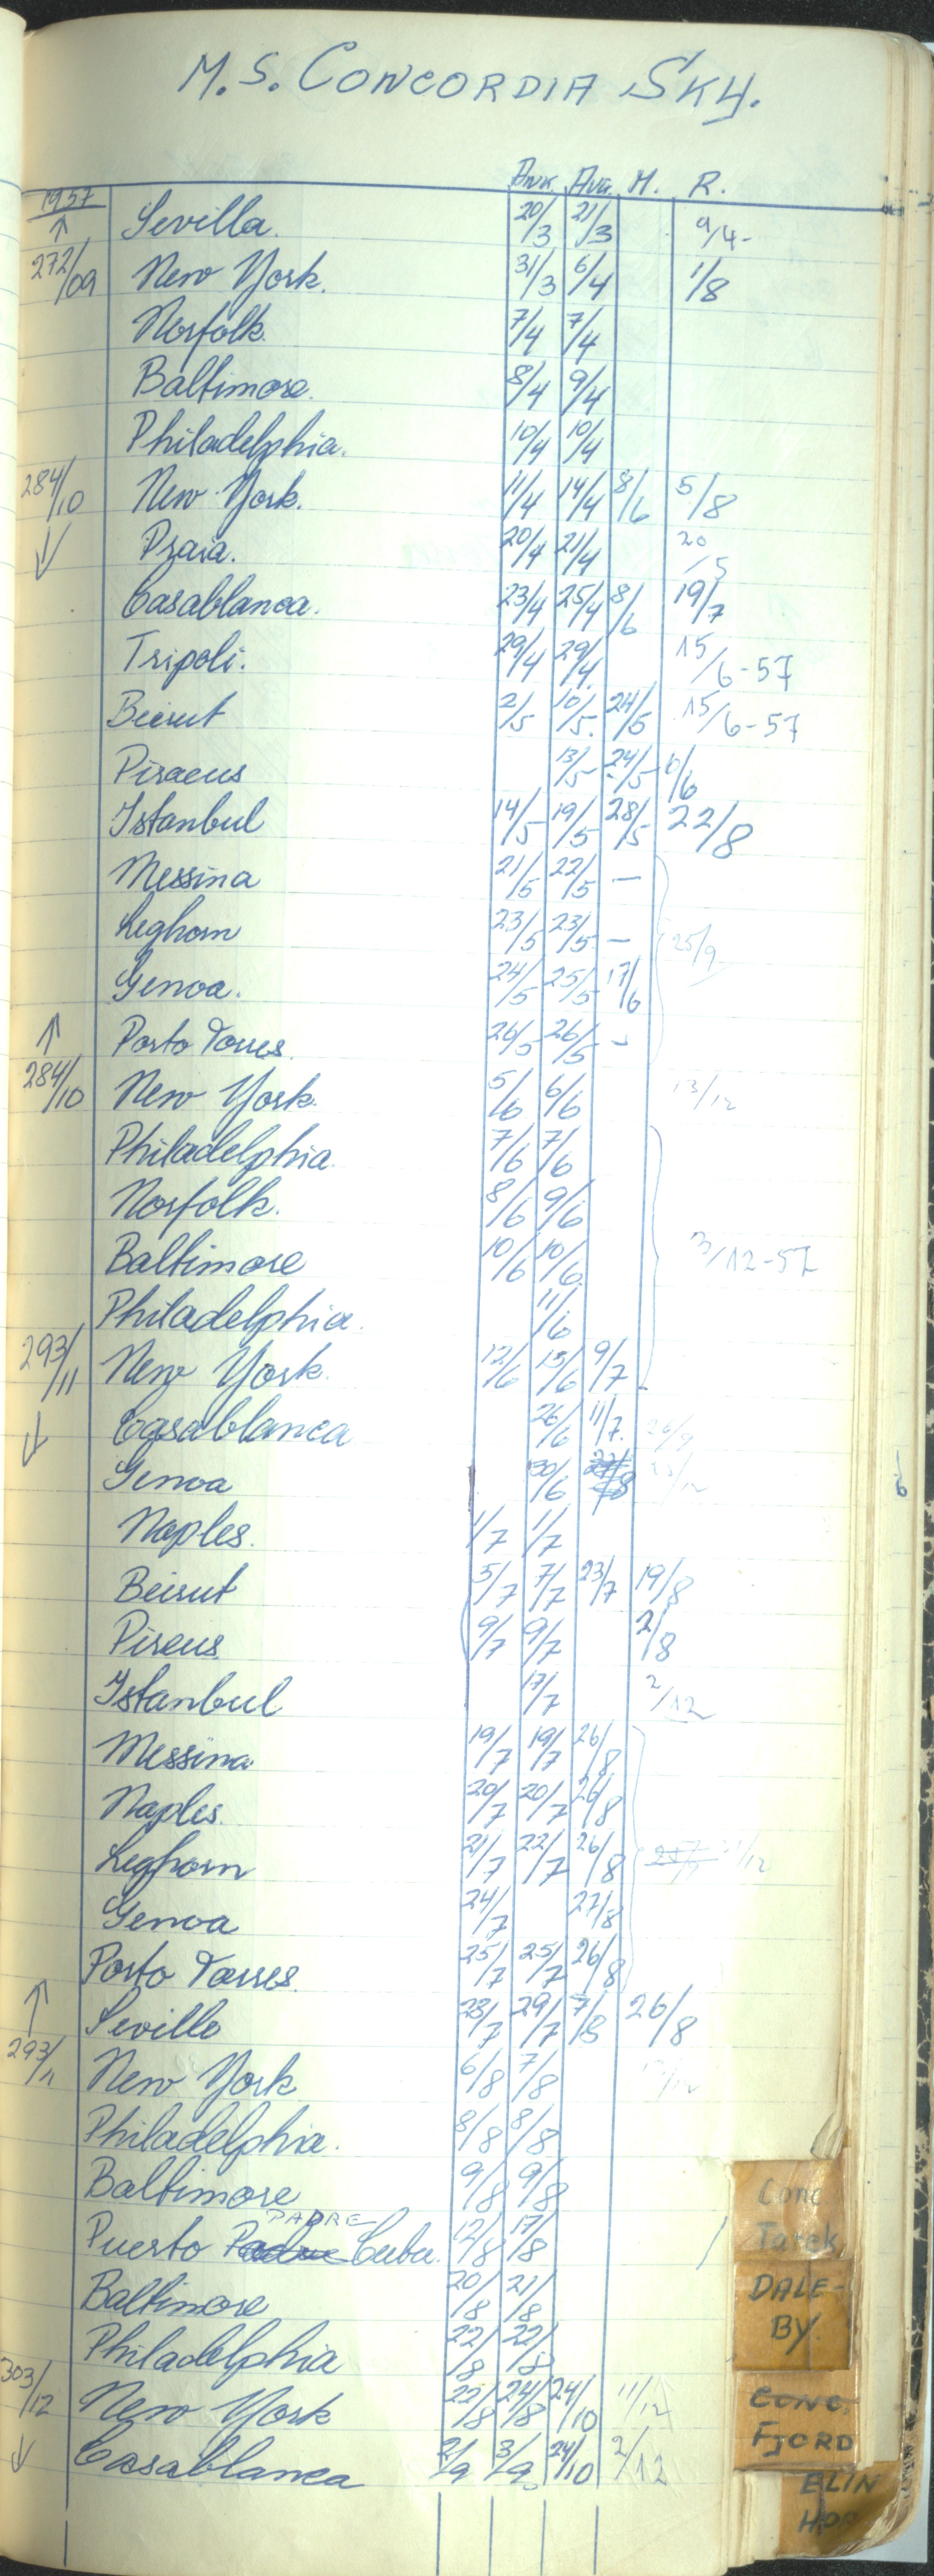 M.S. CONCORDIA SKY.
1957 Ank. Avg. M. R.
↑ Sevilla. 20/3 21/3 9/4-
272/09 New York. 31/3 6/4 1/8
Norfolk. 7/4 7/4
Baltimore. 8/4 9/4
Philadelphia. 10/4 10/4
284/10 New York. 11/4 14/4 8/6 5/8
↓ Praia. 20/4 21/4 20/5
Casablanca. 23/4 25/4 8/6 19/7
Tripoli. 29/4 29/4 15/6-57
Beirut 2/5 10/5. 24/5 15/6-57
Piraeus 13/5 24/5 6/6
Istanbul 14/5 19/5 28/5 22/8
Messina 21/5 22/5 —
Leghorn 23/5 23/5 — 25/9
Genoa. 24/5 25/5 17/6
↑ Porto Torres. 26/5 26/5 -
284/10 New York. 5/6 6/6 13/12
Philadelphia 7/6 7/6
Norfolk. 8/6 9/6
Baltimore 10/6 10/6 3/12-57
Philadelphia. 11/6
293/11 New York. 12/6 15/6 9/7
↓ Casablanca 26/6 11/7. 26/9
Genoa 30/6
Naples. 1/7 1/7
Beirut 5/7 7/7 23/7 19/8
Pireus 9/7 9/7 2/8
Istanbul 17/7 2/12
Messina 19/7 19/7 26/8
Naples. 20/7 20/7 26/8
Leghorn 21/7 22/7 26/8
Genoa 24/7 27/8
Porto Torres. 25/7 25/7 26/8
↑ Seville 28/7 29/7 7/8 26/8
293/11 New York 6/8 7/8
Philadelphia. 8/8 8/8
Baltimore 9/8 9/8
PADRE
Puerto Padre Cuba. 12/8 17/8
Baltimore 20/8 21/8
Philadelphia 22/8 22/8
303/12 New York 22/8 24/8 24/10 11/12
↓ Casablanca 2/9 3/9 24/10 2/12
Conc.
Tarek
DALE-
BY.
CONC.
FJORD
ELIN